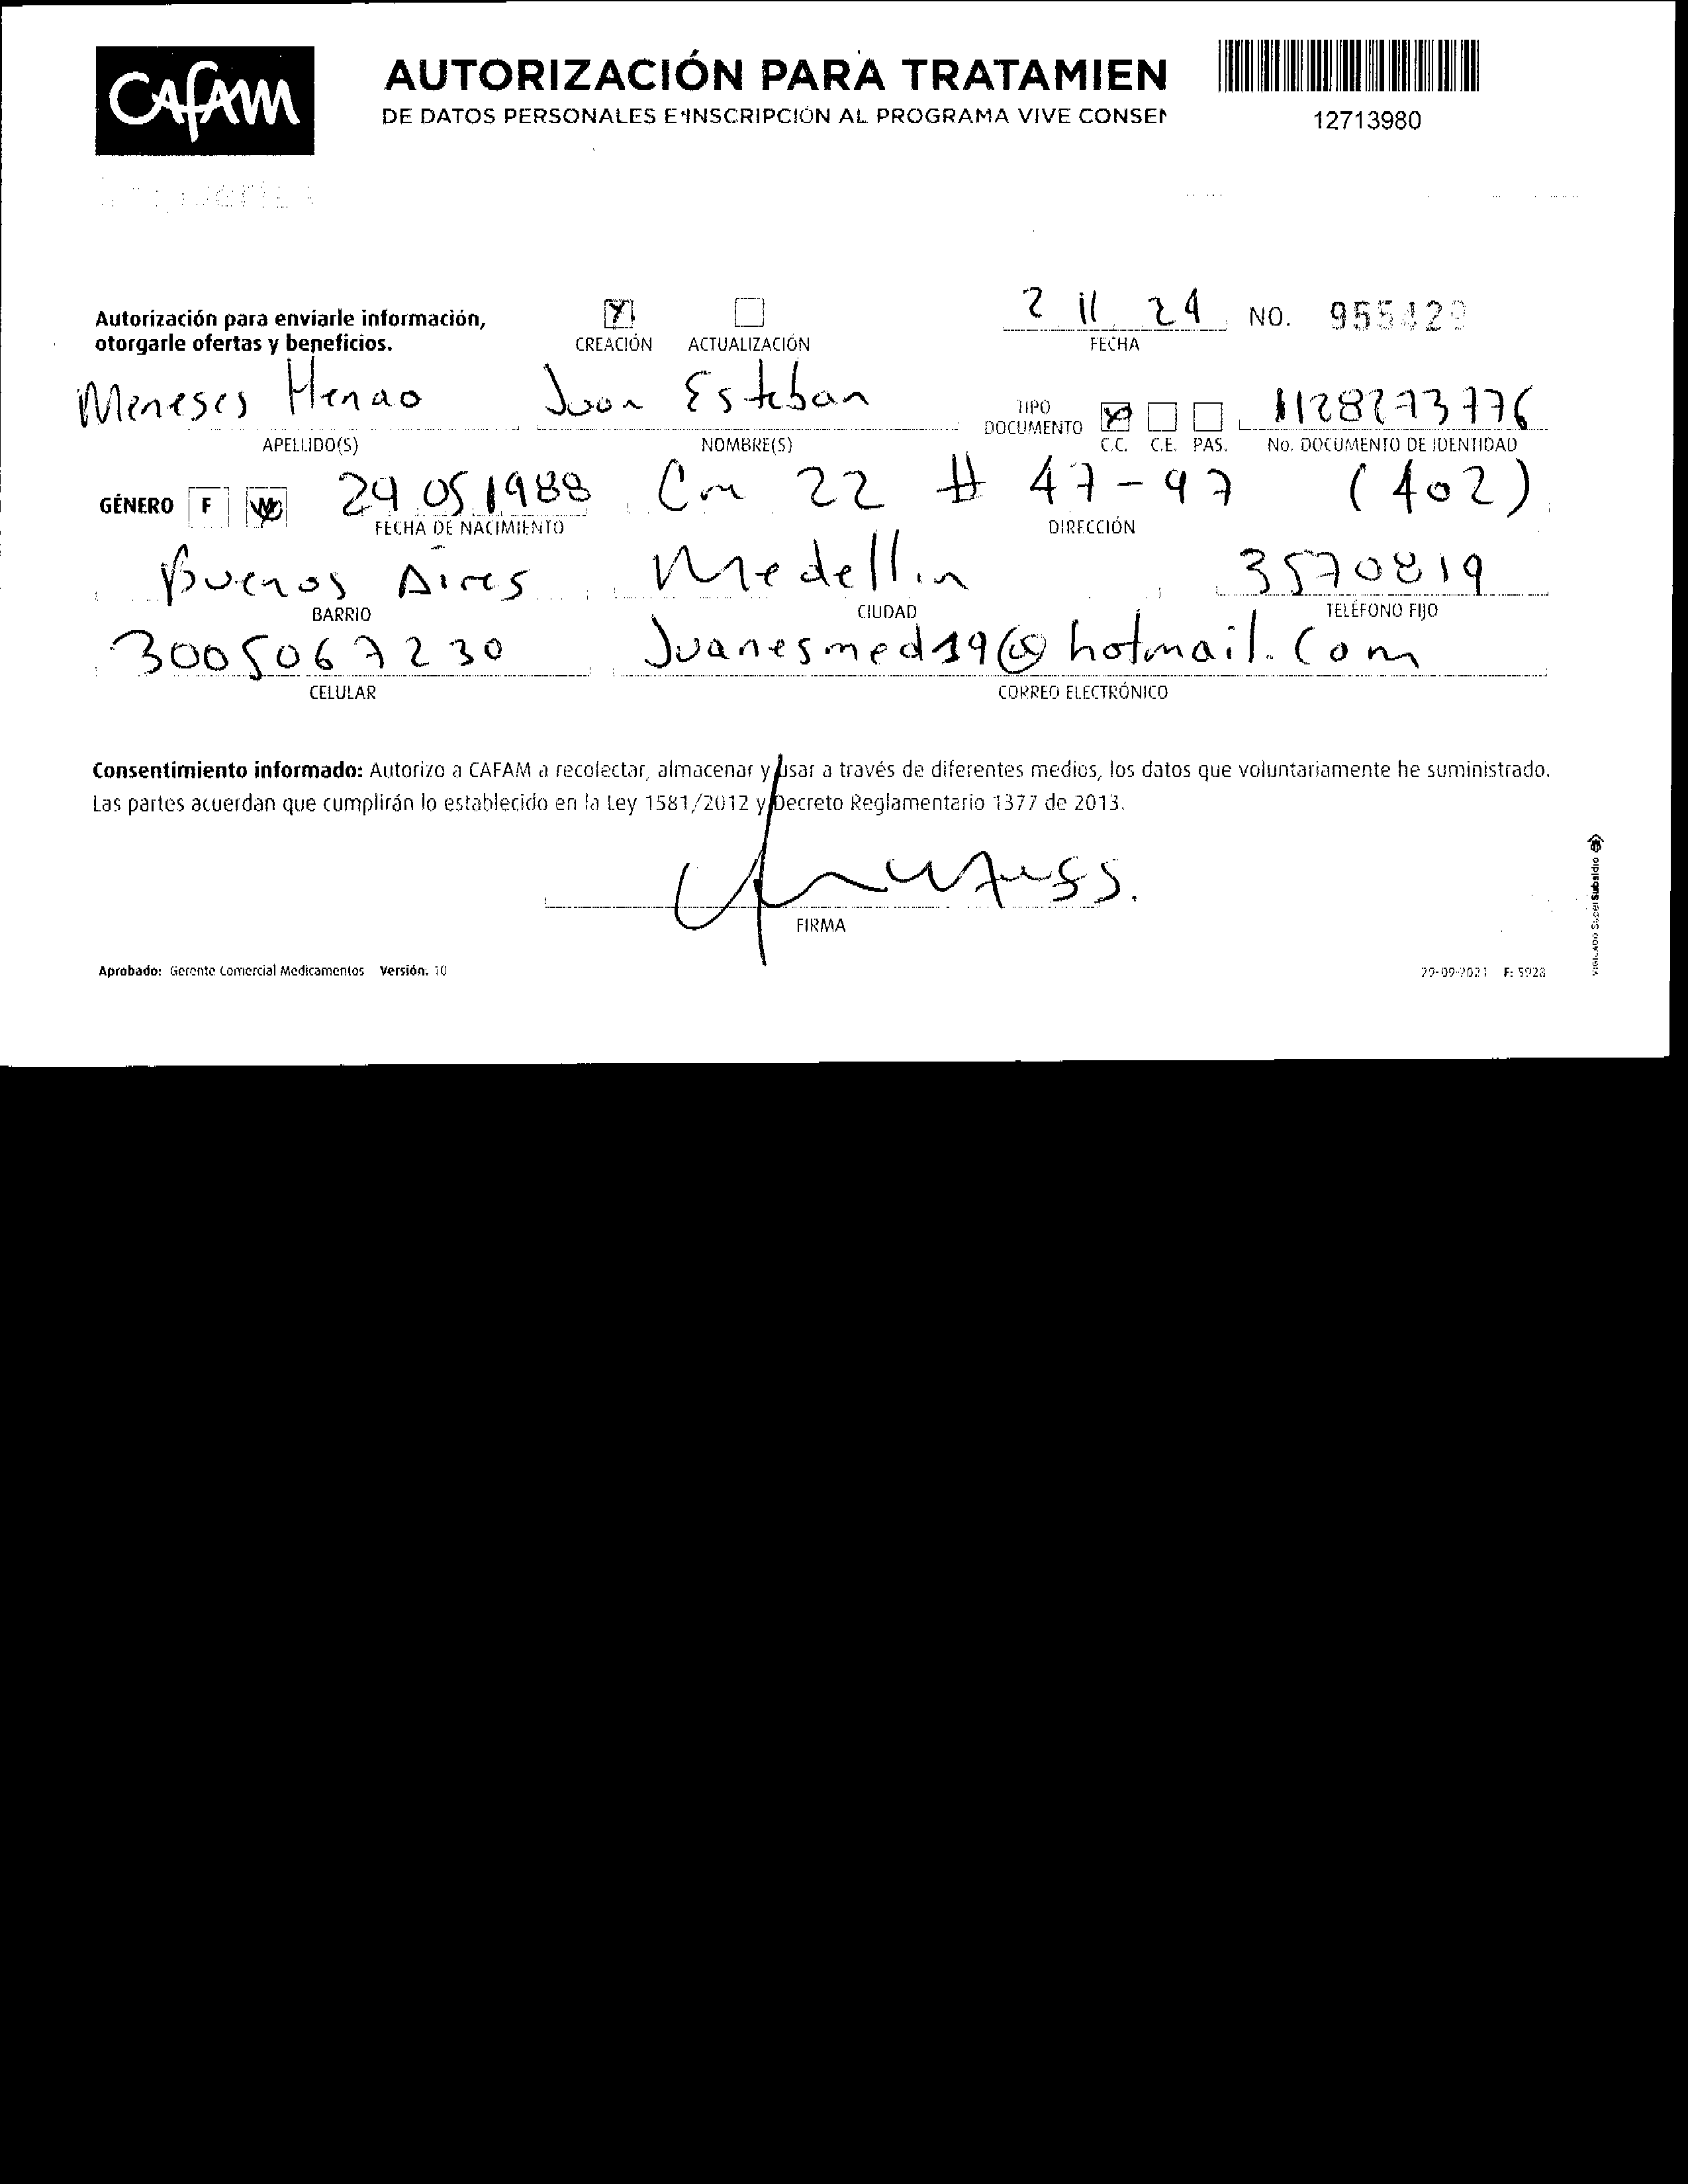 CAFAM
AUTORIZACIÓN PARA TRATAMIEN
DE DATOS PERSONALES E INSCRIPCIÓN AL PROGRAMA VIVE CONSEN
12713980
Autorización para enviarle información,
otorgarle ofertas y beneficios.
CREACIÓN ACTUALIZACIÓN
2 11 24 NO. 955429
FECHA
Meneses Henao Juan Esteban 1128273776
TIPO DOCUMENTO C.C. C.E. PAS.
APELLIDO(S) NOMBRE(S) No. DOCUMENTO DE IDENTIDAD
GÉNERO F M 29 05 1988 Cra 22 # 47-97 (402)
FECHA DE NACIMIENTO DIRECCIÓN
Buenos Aires Medellin 3570819
BARRIO CIUDAD TELÉFONO FIJO
3005067230 Juanesmed19@hotmail.com
CELULAR CORREO ELECTRÓNICO
Consentimiento informado: Autorizo a CAFAM a recolectar, almacenar y usar a través de diferentes medios, los datos que voluntariamente he suministrado.
Las partes acuerdan que cumplirán lo establecido en la Ley 1581/2012 y Decreto Reglamentario 1377 de 2013.
FIRMA
Aprobado: Gerente Comercial Medicamentos Versión. 10
29-09-2021 F: 5928
VIGILADO SuperSubsidio